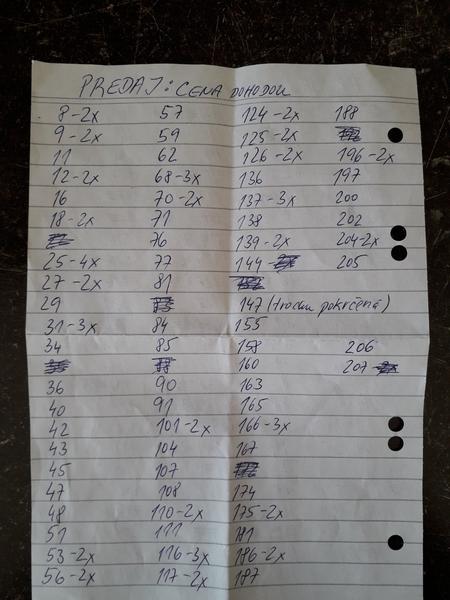 PREDAJ: CENA DOHODOU
8-2x
9-2x
11
12-2x
16
18-2x
25-4x
27-2x
29
31-3x
34
36
40
42
43
45
47
48
51
53-2x
56-2x
57
59
62
68-3x
70-2x
71
76
77
81
84
85
90
91
101-2x
104
107
108
110-2x
111
116-3x
117-2x
124-2x
125-2x
126-2x
136
137-3x
138
139-2x
144-
147 (trochu pokrčená)
155
158
160
163
165
166-3x
167
174
175-2x
181
186-2x
187
188
196-2x
197
200
202
204-2x
205
206
207-